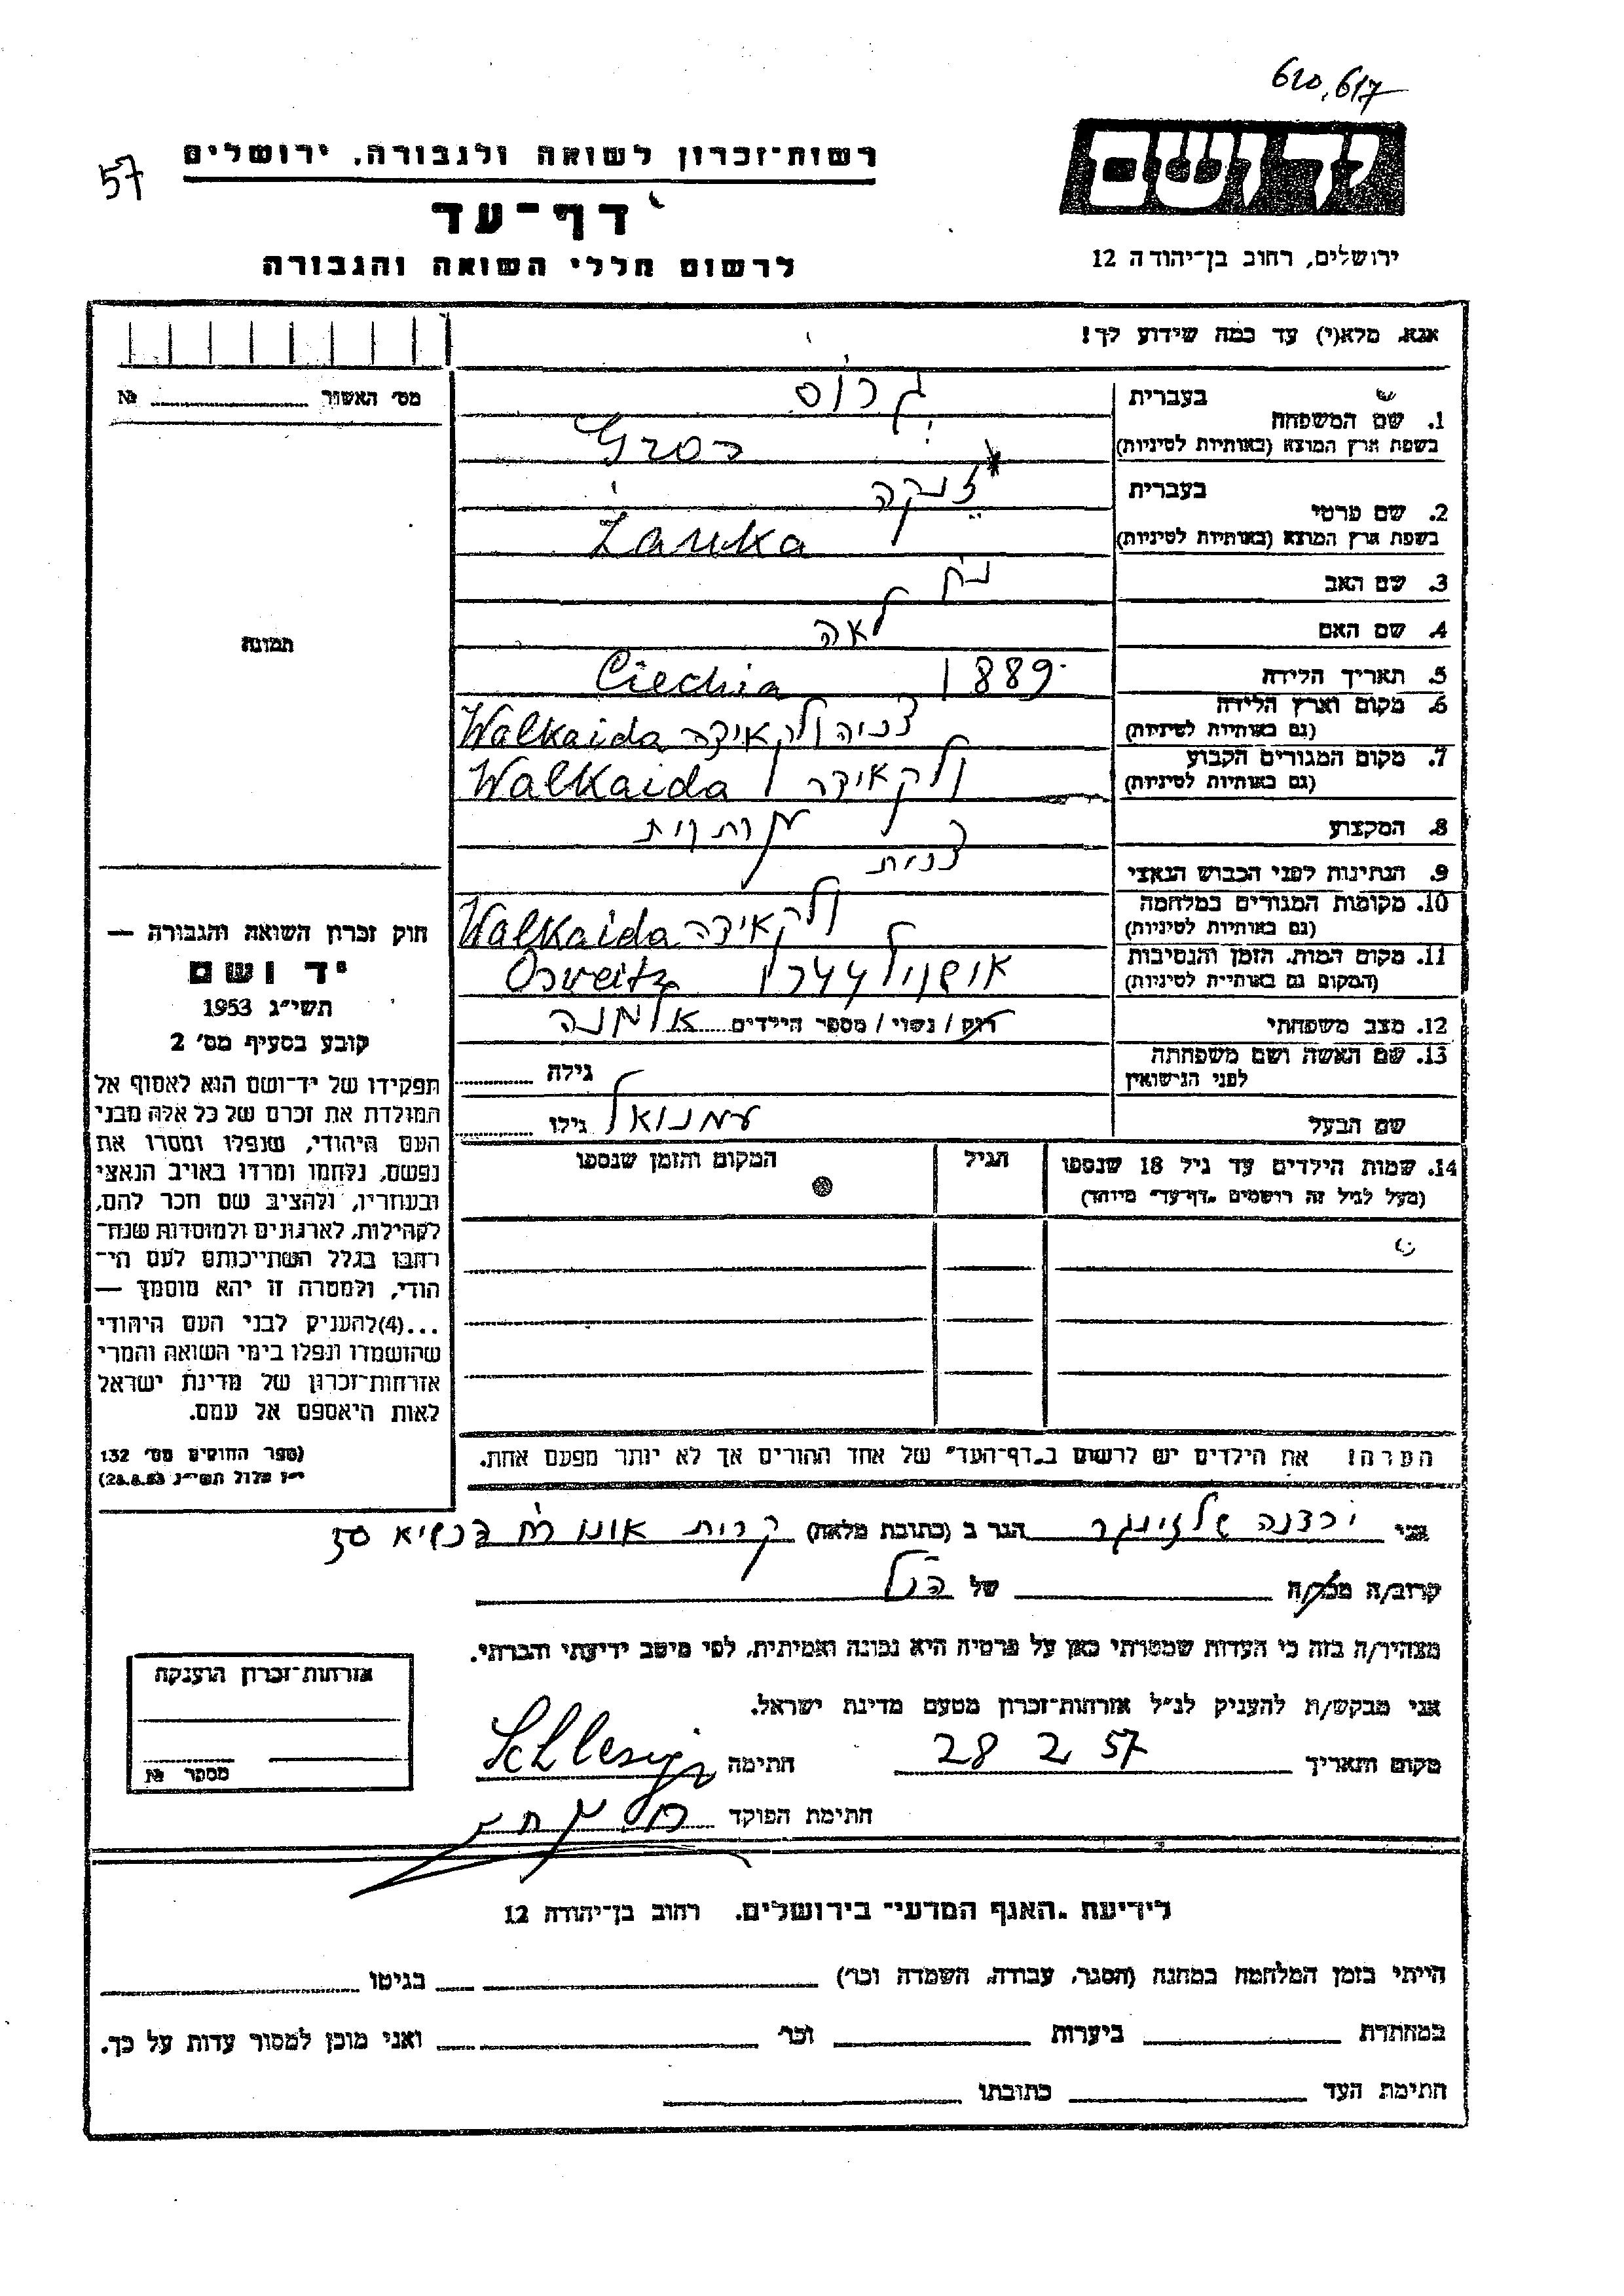 620,617
57
יד ושם
רשות-זכרון לשואה ולגבורה, ירושלים
דף-עד
לרשום חללי השואה והגבורה
ירושלים, רחוב בן-יהודה 12
אנא, מלא(י) עד כמה שידוע לך!
מס' האשור № ............
1. שם המשפחה
בעברית גרוס
בשפת ארץ המוצא (באותיות לטיניות) Gros
2. שם פרטי
בעברית ז'נקה
בשפת ארץ המוצא (באותיות לטיניות) Žanka
3. שם האב נח
4. שם האם לאה
5. תאריך הלידה 1889 Ciechia
6. מקום וארץ הלידה (גם באותיות לטיניות) צ'כיה ולקאידה Walkaida
7. מקום המגורים הקבוע (גם באותיות לטיניות) ולקאידה Walkaida
8. המקצוע
9. הנתינות לפני הכבוש הנאצי צ'כית
10. מקומות המגורים במלחמה (גם באותיות לטיניות) ולקאידה Walkaida
11. מקום המות, הזמן והנסיבות (המקום גם באותיות לטיניות) 1944 Osveitz
12. מצב משפחתי רוק / נשוי / מספר הילדים אלמנה
13. שם האשה ושם משפחתה לפני הנישואין גילה
שם הבעל עמנואל גילו
14. שמות הילדים עד גיל 18 שנספו (מעל לגיל זה רושמים "דף-עד" מיוחד)
הגיל
המקום והזמן שנספו
תמונה
חוק זכרון השואה והגבורה —
יד ושם
תשי"ג 1953
קובע בסעיף מס' 2
תפקידו של יד-ושם הוא לאסוף אל
המולדת את זכרם של כל אלה מבני
העם היהודי, שנפלו ומסרו את
נפשם, נלחמו ומרדו באויב הנאצי
ובעוזריו, ולהציב שם וזכר להם,
לקהילות, לארגונים ולמוסדות שנח-
רבו בגלל השתייכותם לעם הי-
הודי, ולמטרה זו יהא מוסמך —
...(4)להעניק לבני העם היהודי
שהושמדו ונפלו בימי השואה והמרי
אזרחות-זכרון של מדינת ישראל
לאות היאספם אל עמם.
(ספר החוקים מס' 132
י"ז אלול תשי"ג 28.8.53)
הערה: את הילדים יש לרשום ב"דף-העד" של אחד ההורים אך לא יותר מפעם אחת.
אני ירדנה שלזינגר הגר ב (כתובת מלאה) קרית אונו רח הנשיא 50
קרוב/ה מכר/ה של הנ"ל
מצהיר/ה בזה כי העדות שמסרתי כאן על פרטיה היא נכונה ואמיתית, לפי מיטב ידיעתי והכרתי.
אני מבקש/ת להעניק לנ"ל אזרחות-זכרון מטעם מדינת ישראל.
מקום ותאריך 28 2 57 חתימה Schlesinger
חתימת הפוקד
אזרחות-זכרון הוענקה
מספר №
לידיעת "האגף המדעי" בירושלים. רחוב בן-יהודה 12
הייתי בזמן המלחמה במחנה (הסגר, עבודה, השמדה וכו') בגיטו
במחתרת ביערות וכו' ואני מוכן למסור עדות על כך.
חתימת העד כתובתו